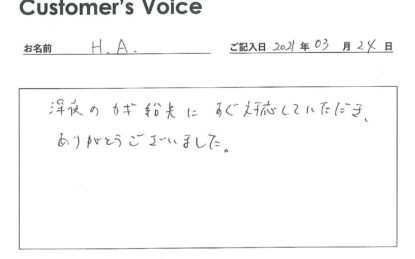 Customer's Voice
お名前 H.A. ご記入日 2021年03月24日
深夜のカギ紛失にすぐ対応していただき、
ありがとうございました。